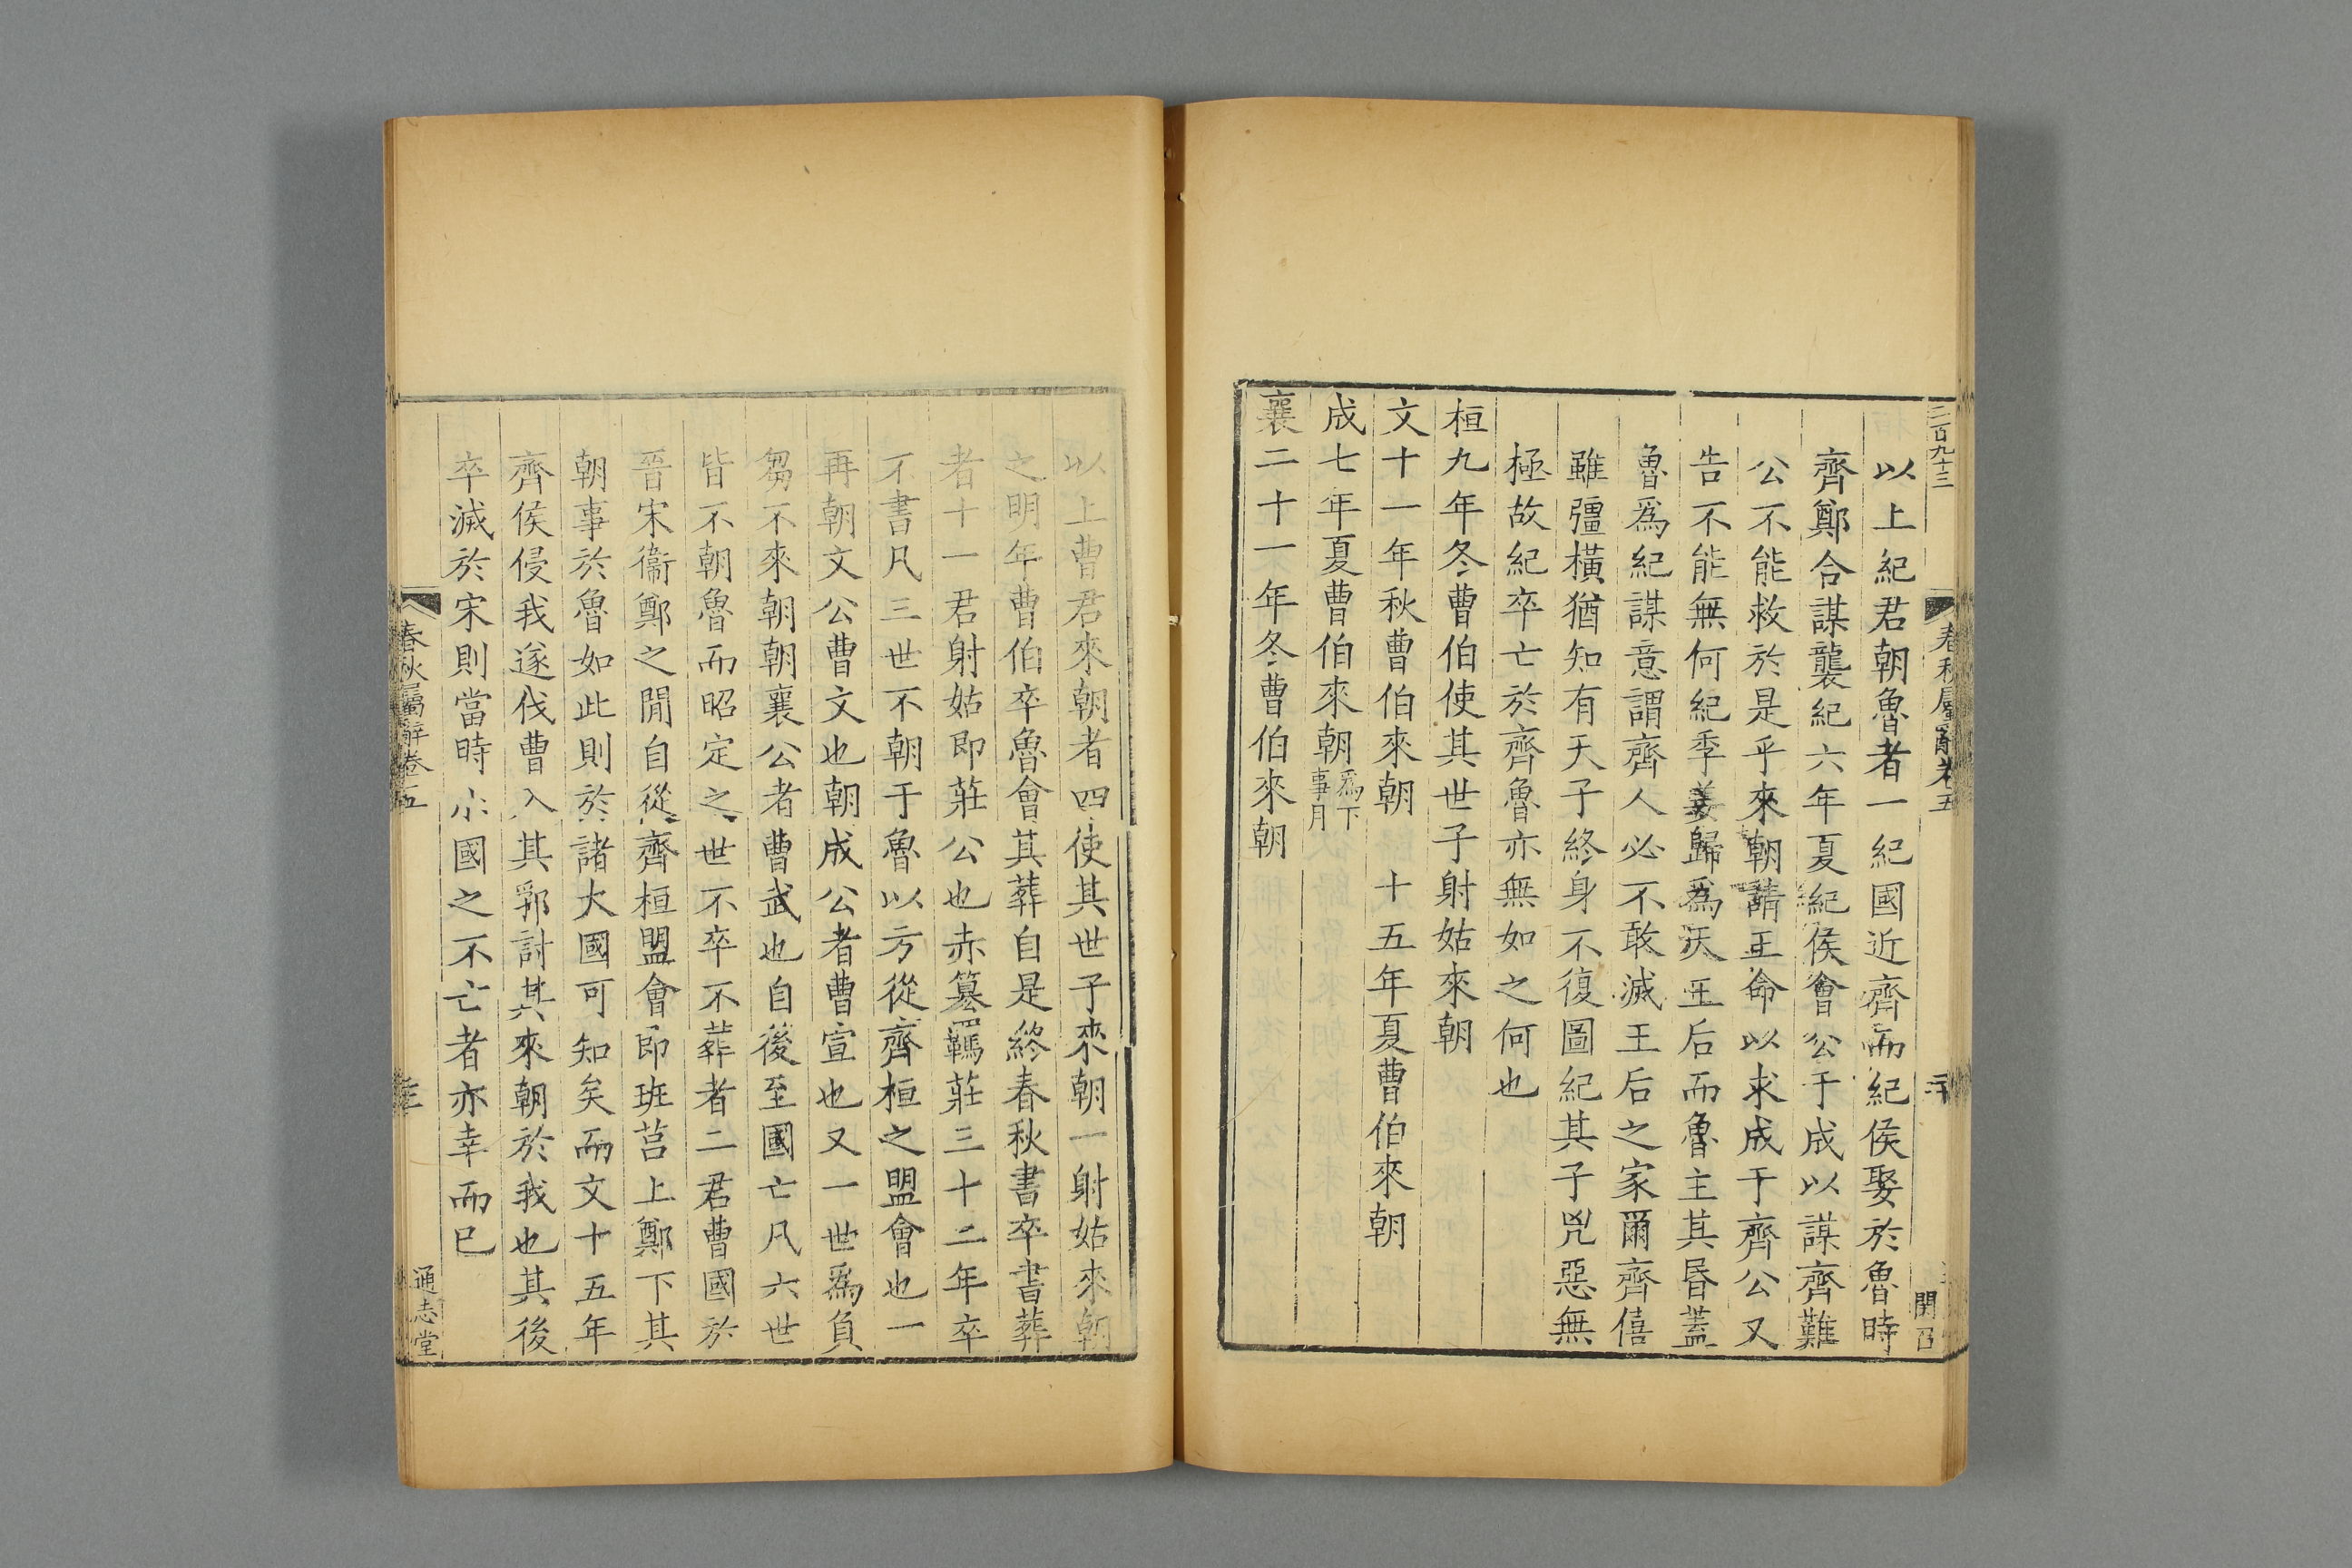 二百九十三
春秋屬辭卷五
以上紀君朝魯者一紀國近齊而紀侯娶於魯時
齊鄭合謀襲紀六年夏紀侯會公于成以謀齊難
公不能救於是乎來朝請王命以求成于齊公又
告不能無何紀季姜歸爲天王后而魯主其昬蓋
魯爲紀謀意謂齊人必不敢滅王后之家爾齊僖
雖彊橫猶知有天子終身不復圖紀其子兇惡無
極故紀卒亡於齊魯亦無如之何也
桓九年冬曹伯使其世子射姑來朝
文十一年秋曹伯來朝 十五年夏曹伯來朝
成七年夏曹伯來朝爲下事月
襄二十一年冬曹伯來朝
以上曹君來朝者四使其世子來朝一射姑來朝
之明年曹伯卒魯會其葬自是終春秋書卒書葬
者十一君射姑即莊公也赤簒羈莊三十二年卒
不書凡三世不朝于魯以方從齊桓之盟會也一
再朝文公曹文也朝成公者曹宣也又一世爲負
芻不來朝朝襄公者曹武也自後至國亡凡六世
皆不朝魯而昭定之世不卒不葬者二君曹國於
晉宋衞鄭之閒自從齊桓盟會即班莒上鄭下其
朝事於魯如此則於諸大國可知矣而文十五年
齊侯侵我遂伐曹入其郛討其來朝於我也其後
卒滅於宋則當時小國之不亡者亦幸而已
春秋屬辭卷五
通志堂